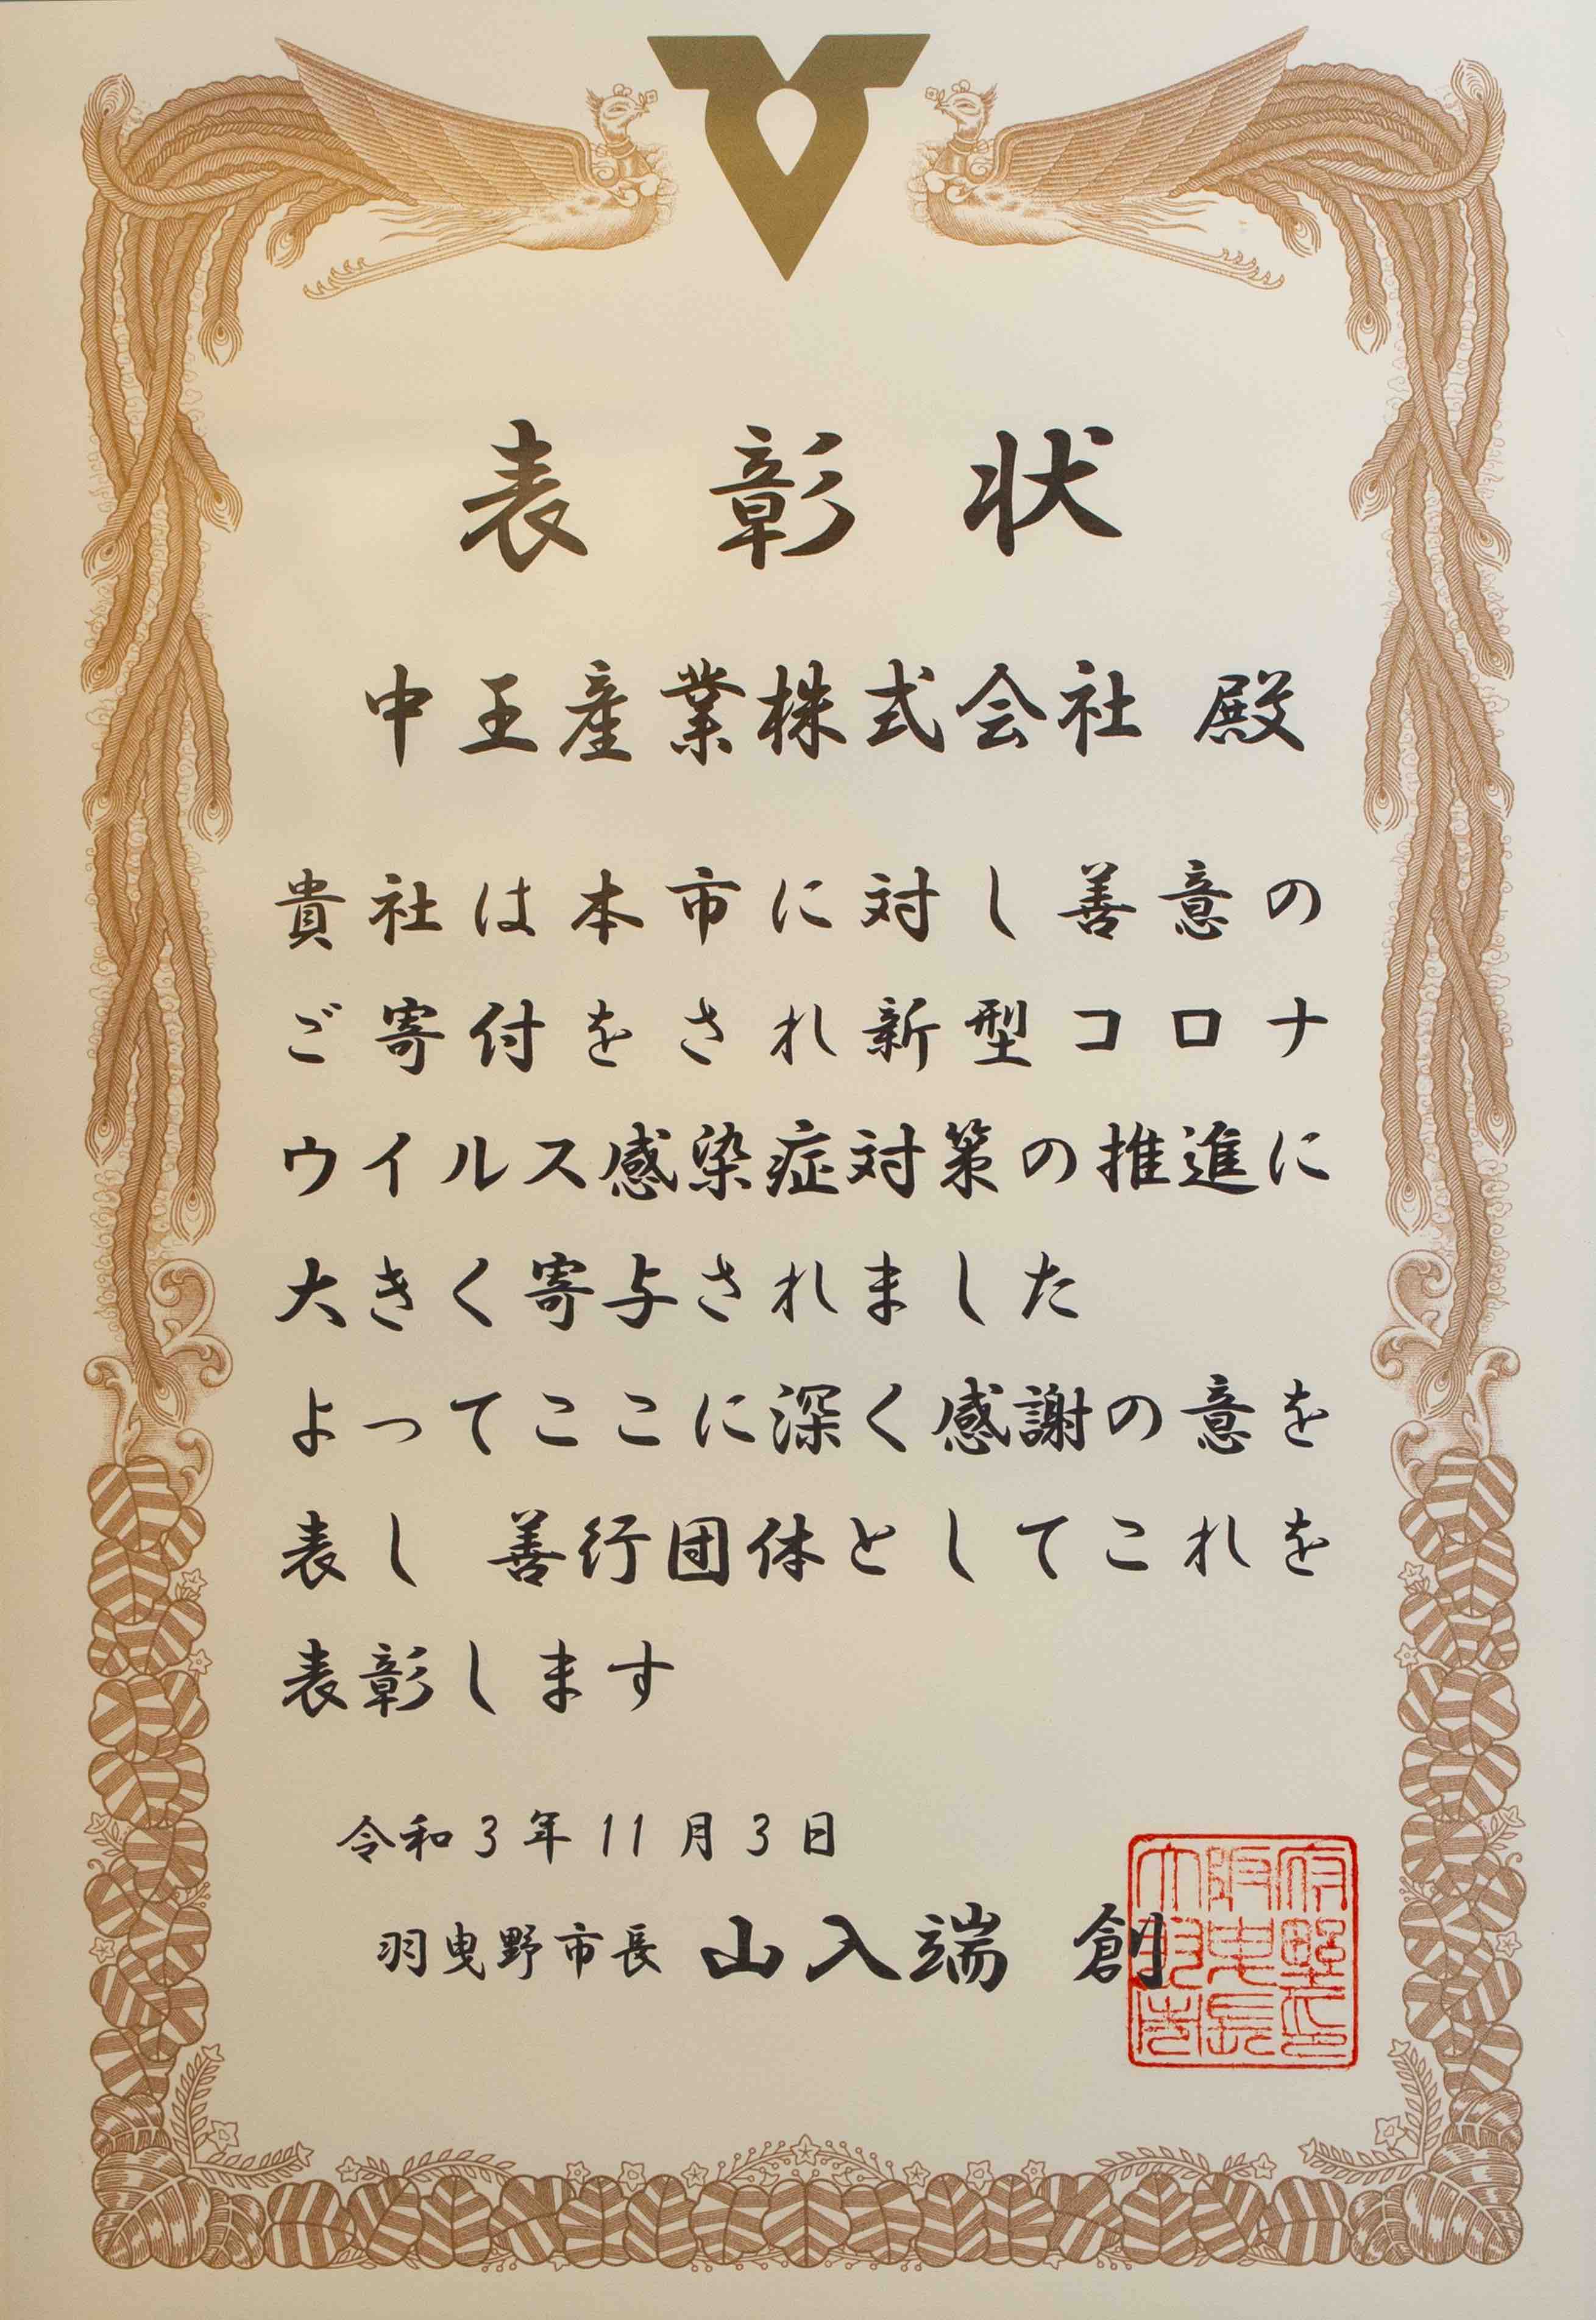 表彰状
中王産業株式会社 殿
貴社は本市に対し善意の
ご寄付をされ新型コロナ
ウイルス感染症対策の推進に
大きく寄与されました
よってここに深く感謝の意を
表し 善行団体としてこれを
表彰します
令和3年11月3日
羽曳野市長 山入端 創
大阪府
羽曳野
市長印